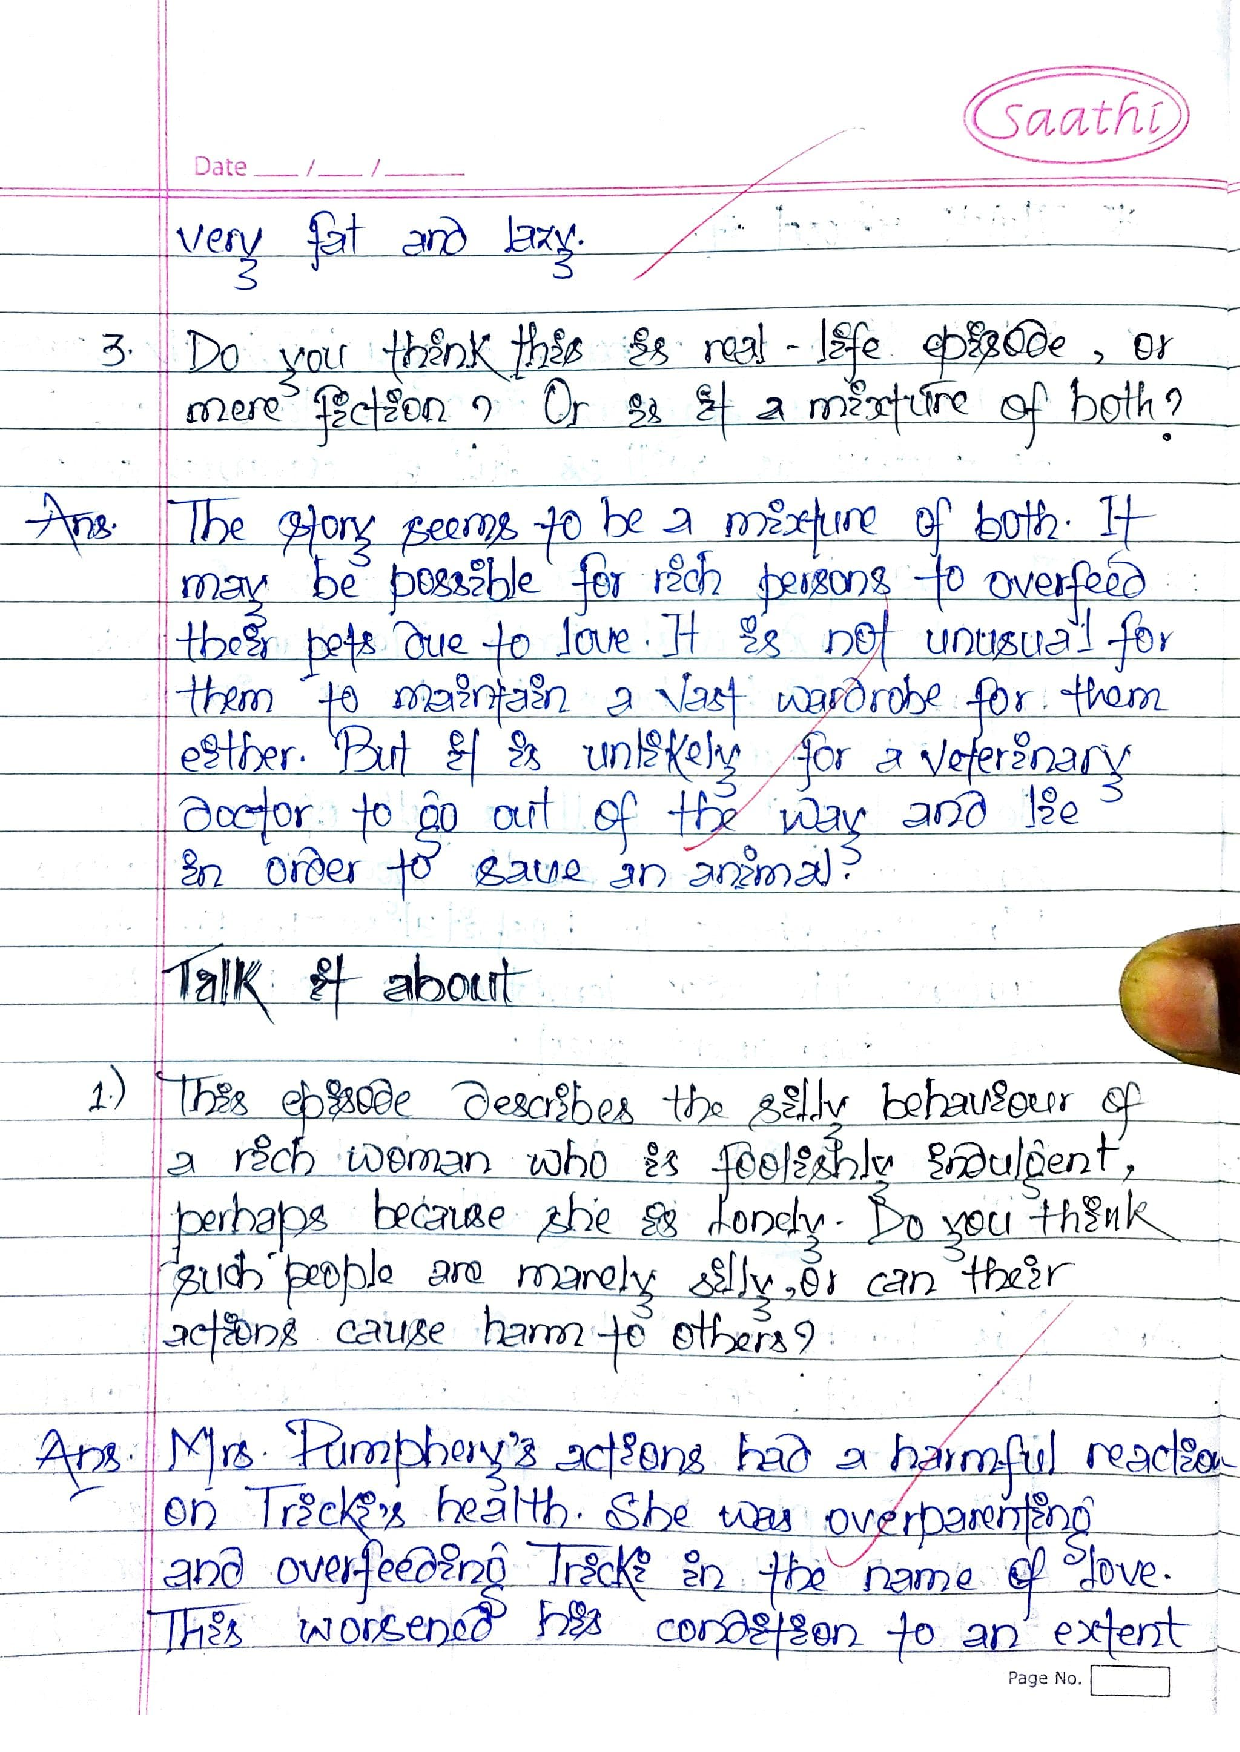 Saathi
Date __/__/____
very fat and lazy.
3. Do you think this is real-life episode, or
mere fiction? Or is it a mixture of both?
Ans. The story seems to be a mixture of both. It
may be possible for rich persons to overfeed
their pets due to love. It is not unusual for
them to maintain a vast wardrobe for them
either. But it is unlikely for a veterinary
doctor to go out of the way and lie
in order to save an animal?
Talk it about
1.) This episode describes the silly behaviour of
a rich woman who is foolishly indulgent,
perhaps because she is lonely. Do you think
such people are marely silly, or can their
actions cause harm to others?
Ans. Mrs. Pumphery's actions had a harmful reaction
on Tricki's health. She was overparenting
and overfeeding Tricki in the name of love.
This worsened his condition to an extent
Page No.